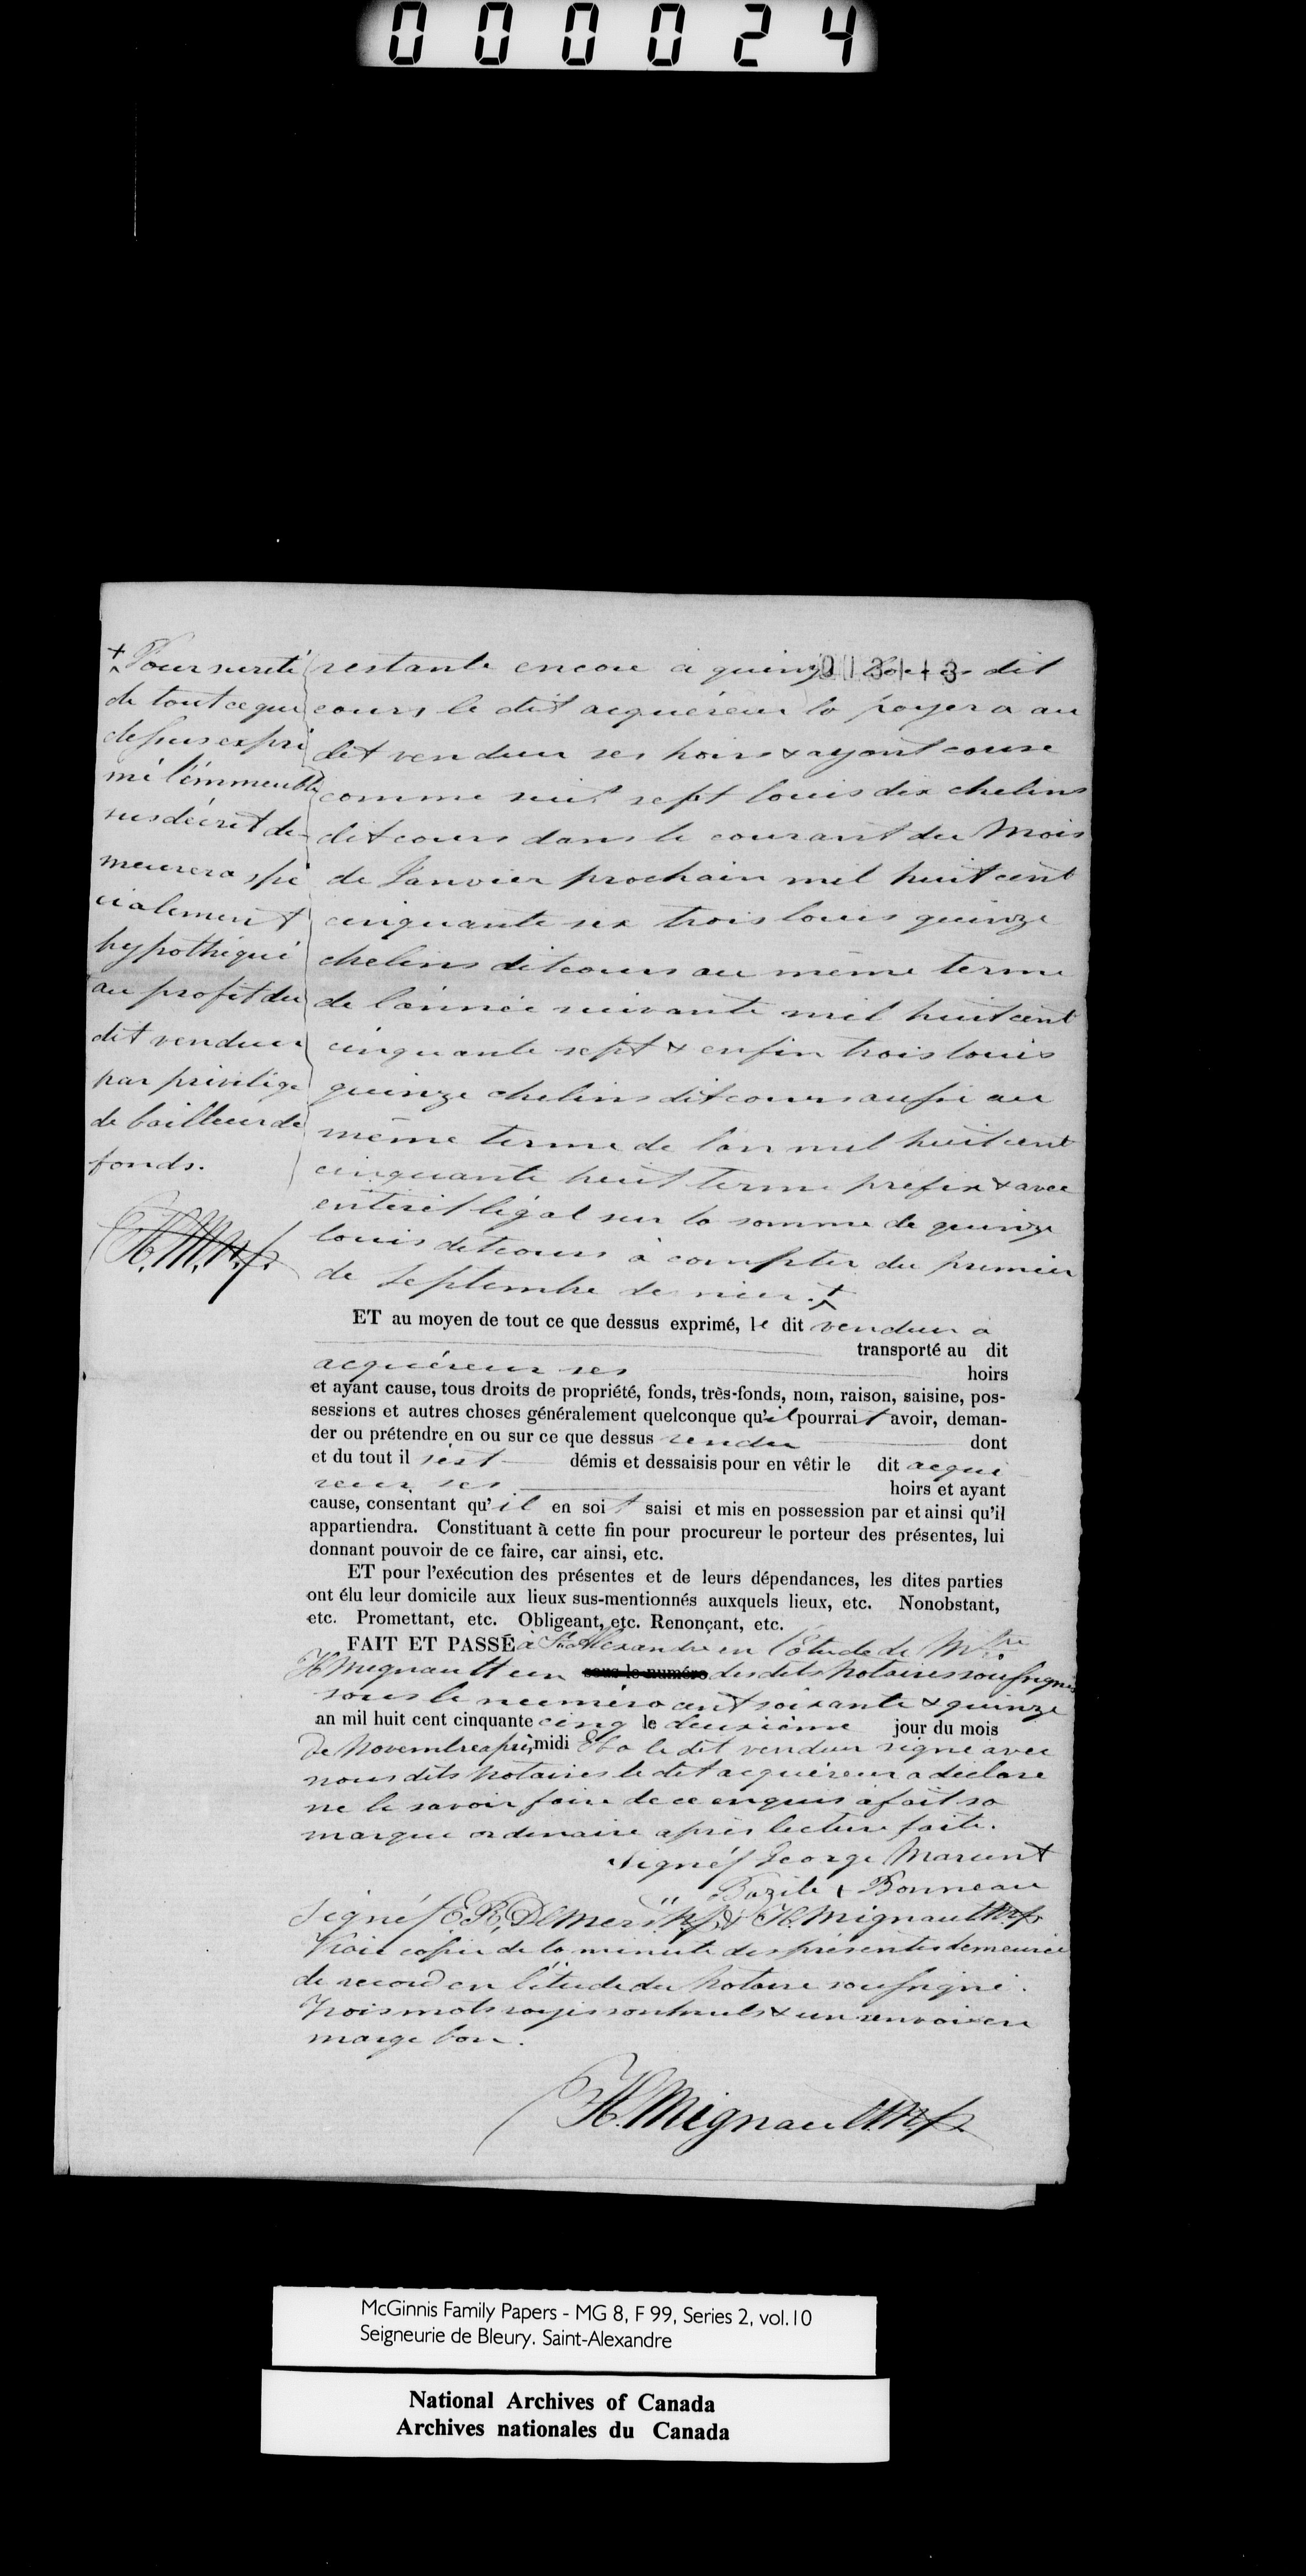 000024
+ Pour sureté
de tout ce que
dessus expri
mé l'immeuble
susdécrit de-
meurera spé
cialement
hypothéqué
au profit du
dit vendeur
par privilège
de bailleur de
fonds.
H.M.N.P.
restante encore à quinze louis dit
cours le dit acquéreur la payera au
dit vendeur ses hoirs & ayant cause
comme suit sept louis dix chelins
dit cours dans le courant du Mois
de Janvier prochain mil huit cent
cinquante six trois louis quinze
chelins dit cours au même terme
de l'année suivante mil huit cent
cinquante sept & enfin trois louis
quinze chelins dit cours aussi au
même terme de l'an mil huit cent
cinquante huit terme préfix & avec
intérêt légal sur la somme de quinze
louis dit cours à compter du premier
de Septembre dernier. +
ET au moyen de tout ce que dessus exprimé, le dit vendeur a
transporté au dit
acquéreur ses hoirs
et ayant cause, tous droits de propriété, fonds, très-fonds, nom, raison, saisine, pos-
sessions et autres choses généralement quelconque qu'il pourrait avoir, deman-
der ou prétendre en ou sur ce que dessus vendu dont
et du tout il s'est démis et dessaisis pour en vêtir le dit acqué
reur ses hoirs et ayant
cause, consentant qu'il en soit saisi et mis en possession par et ainsi qu'il
appartiendra. Constituant à cette fin pour procureur le porteur des présentes, lui
donnant pouvoir de ce faire, car ainsi, etc.
ET pour l'exécution des présentes et de leurs dépendances, les dites parties
ont élu leur domicile aux lieux sus-mentionnés auxquels lieux, etc. Nonobstant,
etc. Promettant, etc. Obligeant, etc. Renonçant, etc.
FAIT ET PASSÉ à St. Alexandre en l'Etude de Mtre
H Mignault un sous le numéro des dits Notaires soussignés
sous le numéro cent soixante & quinze
an mil huit cent cinquante cinq le deuxième jour du mois
de Novembre après midi Et a le dit vendeur signé avec
nous dits Notaires le dit acquéreur a déclaré
ne le savoir faire de ce enquis a fait sa
marque ordinaire après lecture faite.
Signé/ George Marcent
" Bazile + Bonneau
Signé/ E.R. Demers N.P. & H. Mignault N.P.
Vraie copie de la minute des présentes demeurée
de record en l'étude du Notaire soussigné.
Trois mots rayés sont nuls & un renvoi en
marge bon.
H. Mignault N.P.
McGinnis Family Papers - MG 8, F 99, Series 2, vol.10
Seigneurie de Bleury. Saint-Alexandre
National Archives of Canada
Archives nationales du Canada